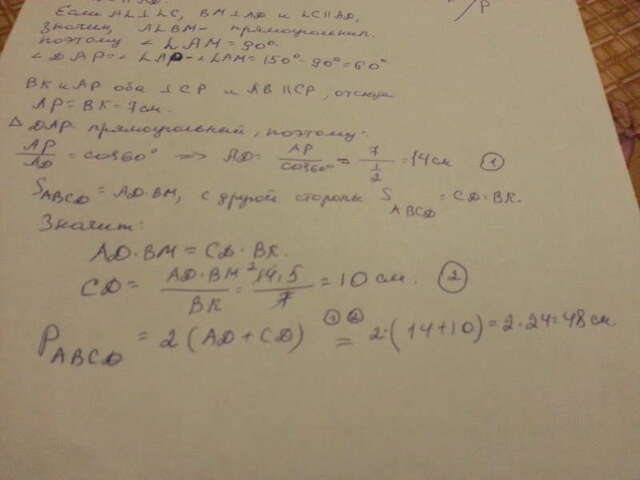 P
Если AL⊥LC, BM⊥AD и LC∥AD,
значит, ALBM - прямоугольник.
поэтому ∠LAM = 90°.
∠DAP = ∠LAP - ∠LAM = 150° - 90° = 60°
BK и AP оба ⊥CP и AB∥CP, отсюда
AP = BK = 7 см.
△ DAP прямоугольный, поэтому:
AP/AD = cos60° => AD = AP/cos60° = 7/(1/2) = 14 см ①
S ABCD = AD·BM, с другой стороны S ABCD = CD·BK.
Значит:
AD·BM = CD·BK.
CD = AD·BM/BK = 14·5/7 = 10 см. ②
P ABCD = 2(AD+CD) ①② = 2·(14+10) = 2·24 = 48 см